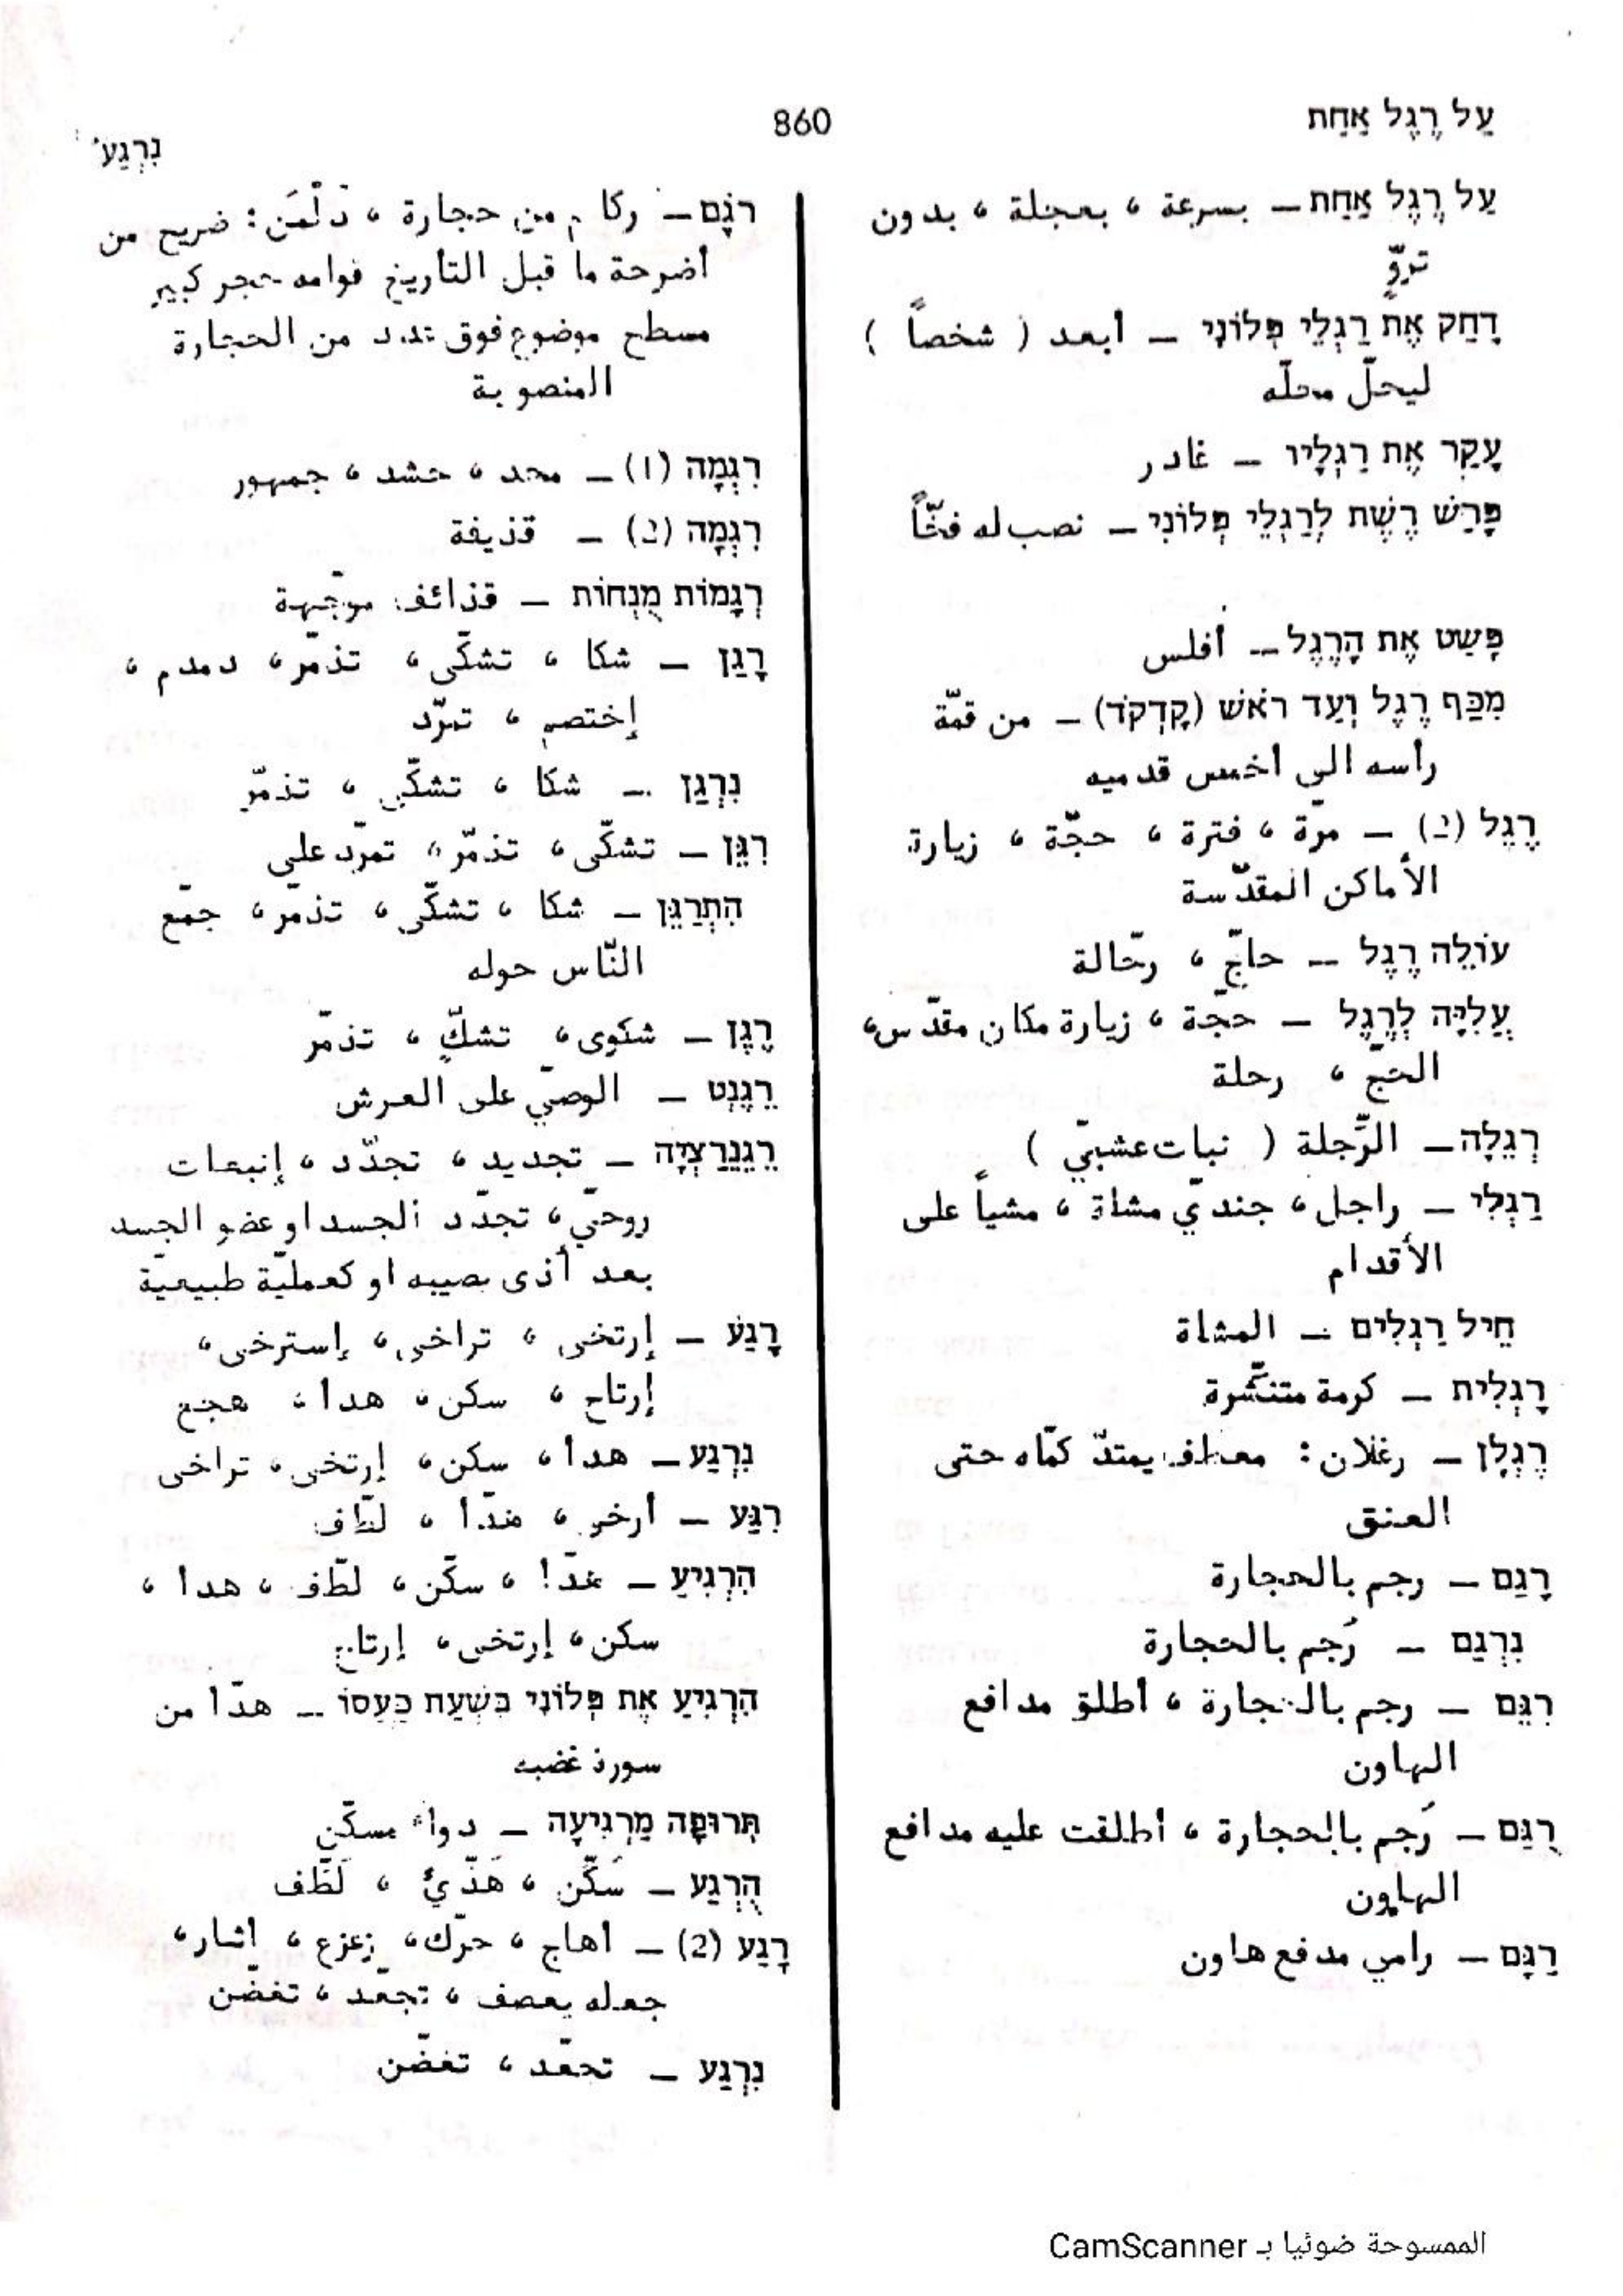 עַל רֶגֶל אַחַת
860
נִרְגַּע
עַל רֶגֶל אַחַת — بسرعة ، بعجلة ، بدون
تروٍّ
דָּחַק אֶת רַגְלֵי פְּלוֹנִי — أبعد ( شخصاً )
ليحلّ محلّه
עָקַר אֶת רַגְלָיו — غادر
פָּרַשׂ רֶשֶׁת לְרַגְלֵי פְּלוֹנִי — نصب له فخّاً
פָּשַׁט אֶת הָרֶגֶל — أفلس
מִכַּף רֶגֶל וְעַד רֹאשׁ (קָדְקֹד) — من قمّة
رأسه الى أخمس قدميه
רֶגֶל (2) — مرّة ، فترة ، حجّة ، زيارة
الأماكن المقدّسة
עוֹלֵה רֶגֶל — حاجّ ، رحّالة
עֲלִיָּה לְרֶגֶל — حجّة ، زيارة مكان مقدّس،
الحجّ ، رحلة
רְגֵלָה — الرِّجلة ( نبات عشبيّ )
רַגְלִי — راجل ، جنديّ مشاة ، مشياً على
الأقدام
חֵיל רַגְלִים — المشاة
רָגְלִית — كرمة متنشّرة
רֶגְלָן — رغلان : معطف يمتدّ كمّاه حتى
العنق
רָגַם — رجم بالحجارة
נִרְגַּם — رُجم بالحجارة
רִגֵּם — رجم بالحجارة ، أطلق مدافع
الهاون
רֻגַּם — رُجم بالحجارة ، أطلقت عليه مدافع
الهاون
רַגָּם — رامي مدفع هاون
רֹגֶם — ركام من حجارة ، دَلْمَن : ضريح من
أضرحة ما قبل التأريخ قوامه حجر كبير
مسطح موضوع فوق عدد من الحجارة
المنصوبة
רִגְמָה (1) — محد ، حشد ، جمهور
רִגְמָה (2) — قذيفة
רְגָמוֹת מֻנְחוֹת — قذائف موجّهة
רָגַן — شكا ، تشكّى ، تذمّر ، دمدم ،
إختصم ، تمرّد
נִרְגַּן — شكا ، تشكّى ، تذمّر
רִגֵּן — تشكّى ، تذمّر ، تمرّد على
הִתְרַגֵּן — شكا ، تشكّى ، تذمّر ، جمّع
النّاس حوله
רֶגֶן — شكوى ، تشكٍّ ، تذمّر
רֵגֶנְט — الوصيّ على العرش
רֵגֵנֵרַצְיָה — تجديد ، تجدّد ، إنبعاث
روحيّ ، تجدّد الجسد او عضو الجسد
بعد أذى يصيبه او كعمليّة طبيعيّة
רָגַע — إرتخى ، تراخى ، إسترخى ،
إرتاح ، سكن ، هدأ ، هجع
נִרְגַּע — هدأ ، سكن ، إرتخى ، تراخى
רִגַּע — أرخى ، هدّأ ، لطّف
הִרְגִּיעַ — هدّأ ، سكّن ، لطّف ، هدأ ،
سكن ، إرتخى ، إرتاح
הִרְגִּיעַ אֶת פְּלוֹנִי בִּשְׁעַת כַּעֲסוֹ — هدّأ من
سورة غضبه
תְּרוּפָה מַרְגִּיעָה — دواء مسكّن
הֻרְגַּע — سُكِّن ، هُدِّئ ، لُطِّف
רָגַע (2) — أهاج ، حرّك ، زعزع ، اثار ،
جعله يعصف ، تجعّد ، تغضّن
נִרְגַּע — تجعّد ، تغضّن
الممسوحة ضوئيا بـ CamScanner